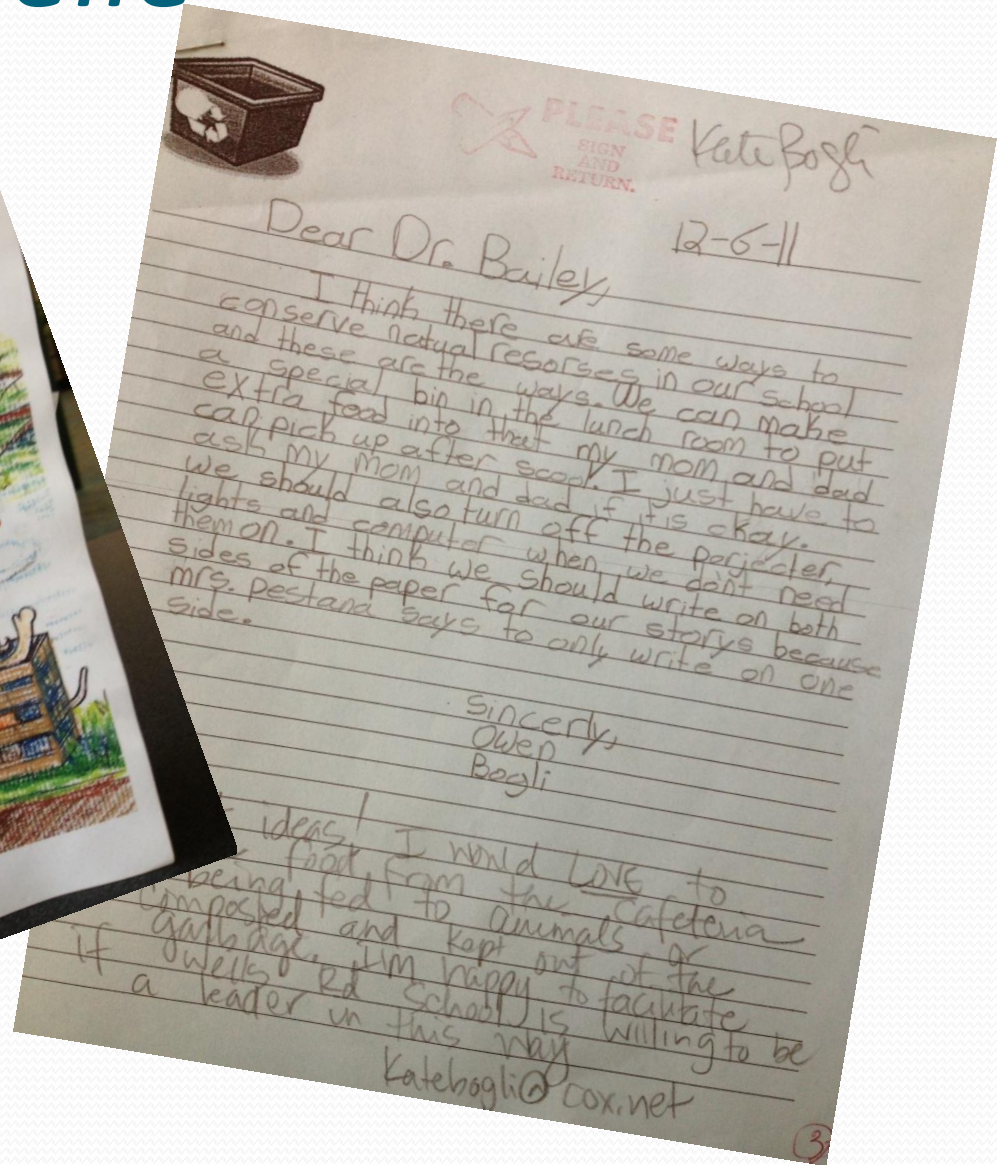 PLEASE
SIGN
AND
RETURN.
Kate Bogli
12-6-11
Dear Dr. Bailey,
I think there are some ways to
conserve natual resorses in our school
and these are the ways. We can make
a special bin in the lunch room to put
extra food into that my mom and dad
can pick up after scool. I just have to
ask my mom and dad if it is okay.
we should also turn off the porjecter,
lights and computer when we don't need
them on. I think we should write on both
sides of the paper for our storys because
mrs. Pestana says to only write on one
side.
Sincerly,
Owen
Bogli
ideas! I would LOVE to
food from the cafeteria
being fed to animals or
composted and kept out of the
garbage. I'm happy to facilitate
if Wells Rd School is willing to be
a leader in this way
Katebogli@cox.net
3